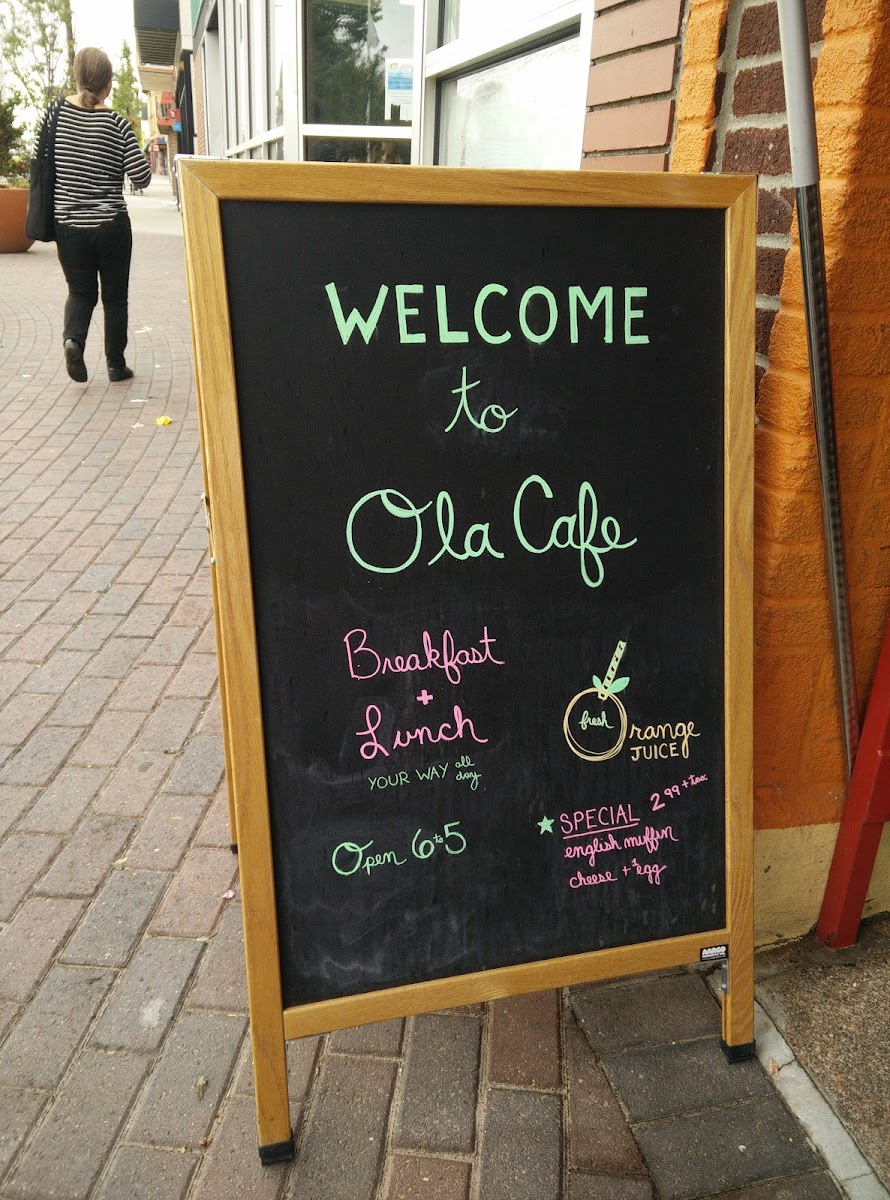 WELCOME
to
Ola Cafe
Breakfast
+
Lunch
YOUR WAY all day
Open 6 to 5
fresh Orange
JUICE
SPECIAL 2.99 + tax
english muffin
cheese + 1 egg
AARCO